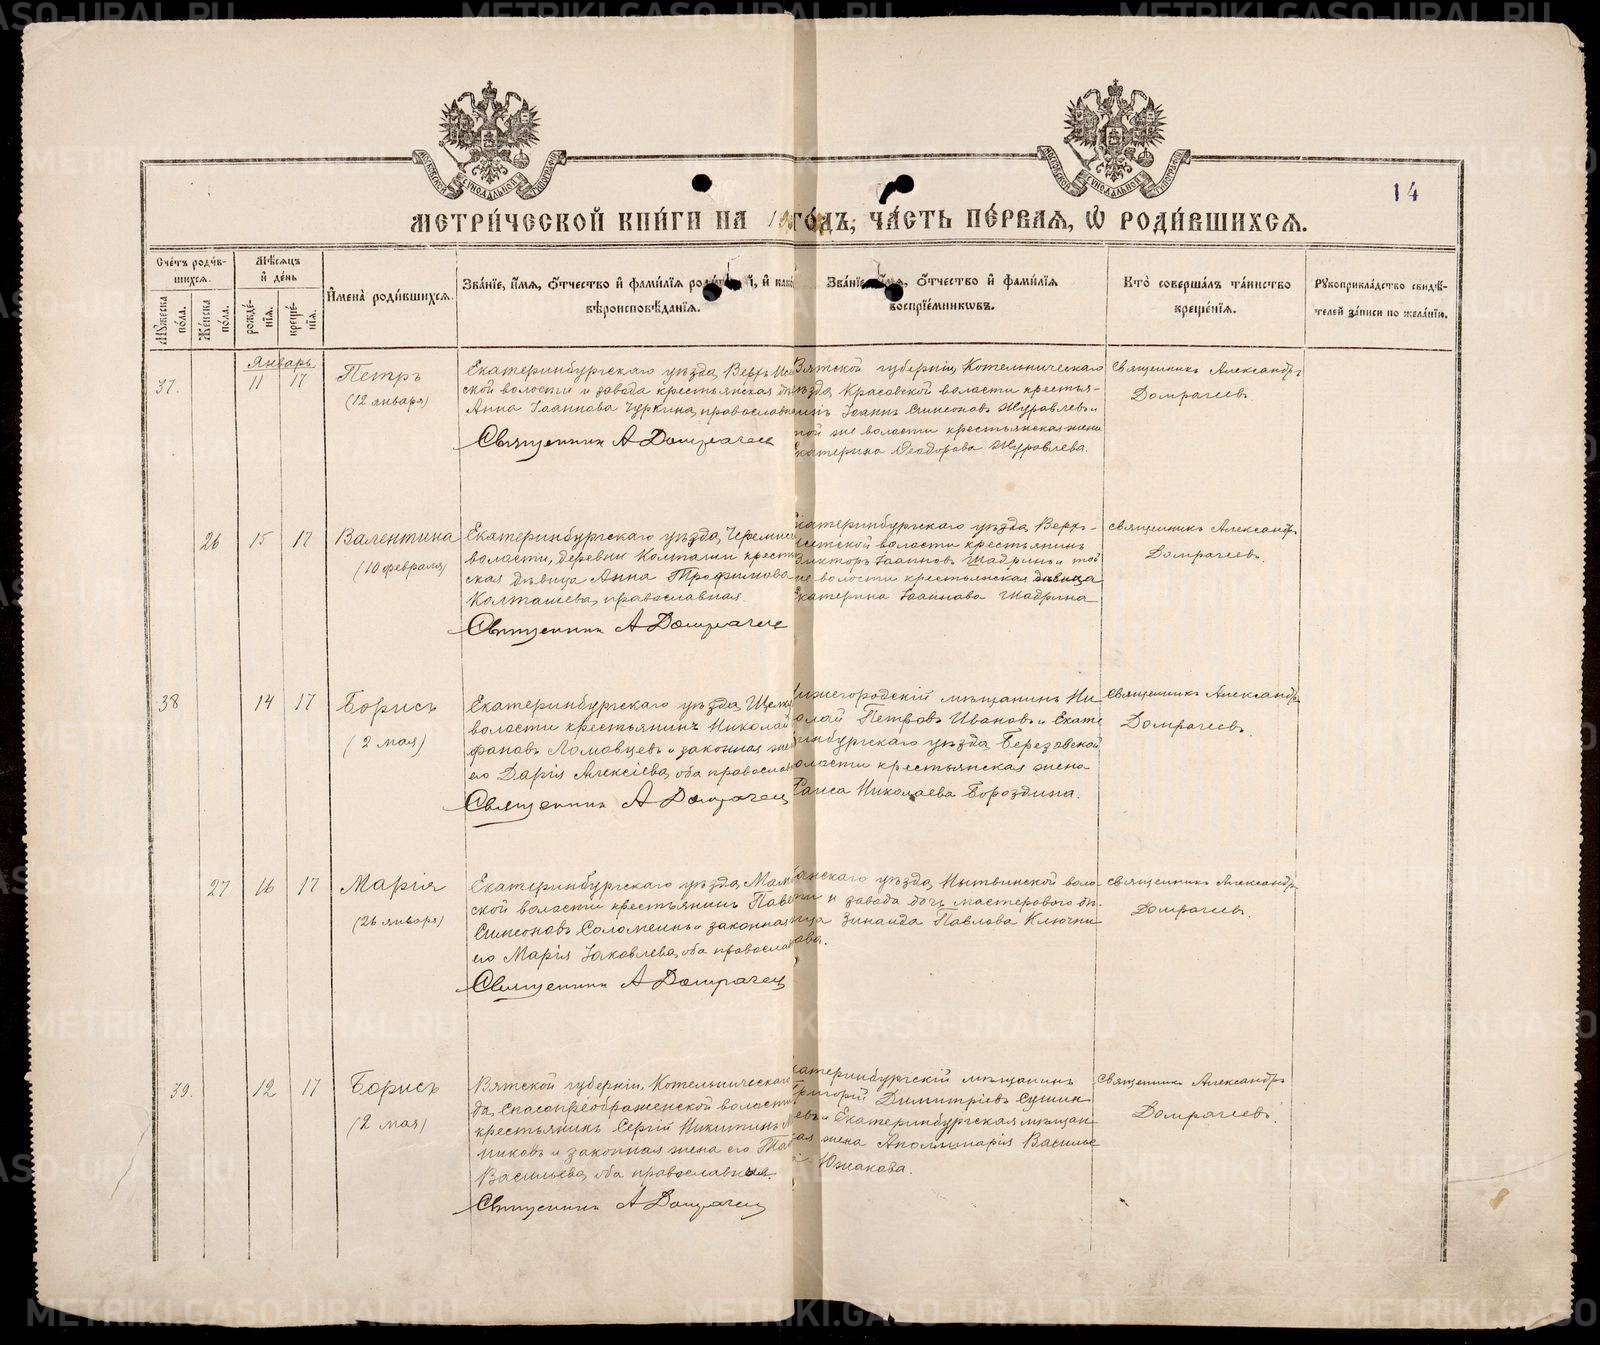 14
МЕТРИ́ЧЕСКОЙ КНИ́ГИ НА 19 ГО́ДЪ, ЧА́СТЬ ПЕ́РВАЯ, Ѡ РОДИ́ВШИХСЯ.
Сче́тъ роди́в-
шихся.
Мꙋжеска по́ла.
Же́нска по́ла.
Мѣ́сяцъ и де́нь
рожде́-нїя.
креще́-нїя.
Имена̀ роди́вшихся.
Зва́нїе, и́мя, ѻ҆́тчество и фами́лїя
вѣроисповѣ́данїя.
Зва́нїе, ѻ҆́тчество и фами́лїя
воспрїе́мниковъ.
Кто̀ соверша́лъ та́инство
креще́нїя.
Рꙋкоприкла́дство свидѣ́-
телей за́писи по жела́нїю.
Январь
37.
11 17
Петръ
(12 января)
Екатеринбургскаго уѣзда, Верхъ-Исе
ской волости и завода крестьянская дѣ
Анна Іоаннова Чуркина, православная
Священник А Домрачев
Вятской губерніи, Котельническаго
уѣзда, Красовской волости крестья-
нинъ Іоаннъ Симеоновъ Журавлевъ и
той же волости крестьянская жена
Екатерина Ѳеодорова Журавлева.
Священникъ Александръ
Домрачевъ.
26
15 17
Валентина
(10 февраля)
Екатеринбургскаго уѣзда,
волости, деревни Колташи крестьян
ская дѣвица Анна Трофимова
Колташева, православная.
Священник А Домрачев
Екатеринбургскаго уѣзда Верхъ-
Исетской волости крестьянинъ
Викторъ Іоанновъ Шадринъ и той
же волости крестьянская дѣвица
Екатерина Іоаннова Шадрина
Священникъ Александръ
Домрачевъ.
38
14 17
Борисъ
(2 мая)
Екатеринбургскаго уѣзда,
волости крестьянинъ Николай
фановъ Ломовцевъ и законная же
его Дарія Алексіева, оба православ
Священник А Домрачев
Нижегородскій мѣщанинъ Ни
колай Петровъ Ивановъ и Екате
ринбургскаго уѣзда, Березовской
волости крестьянская жена
Раиса Николаева Бороздина.
Священникъ Александръ
Домрачевъ.
27
16 17
Марія
(26 января)
Екатеринбургскаго уѣзда, Мам
ской волости крестьянинъ Павел
Симеоновъ Соломеинъ и законная
его Марія Іаковлева, оба православ
Священник А Домрачев
уѣзда, Нытвинской воло-
сти и завода дочь мастерового дѣ-
вица Зинаида Павлова Ключни-
кова.
Священникъ Александръ
Домрачевъ.
39.
12 17
Борисъ
(2 мая)
Вятской губерніи, Котельническаго
да, Спасопреображенской волости
крестьянинъ Сергій Никитинъ
никовъ и законная жена его
Васильева, оба православныя.
Священник А Домрачев
Екатеринбургскій мѣщанинъ
Григорій Димитріевъ Сушин
Екатеринбургская мѣщан
ская жена Аполлинарія Василье
Южакова.
Священникъ Александръ
Домрачевъ.
METRIKI.GASO-URAL.RU